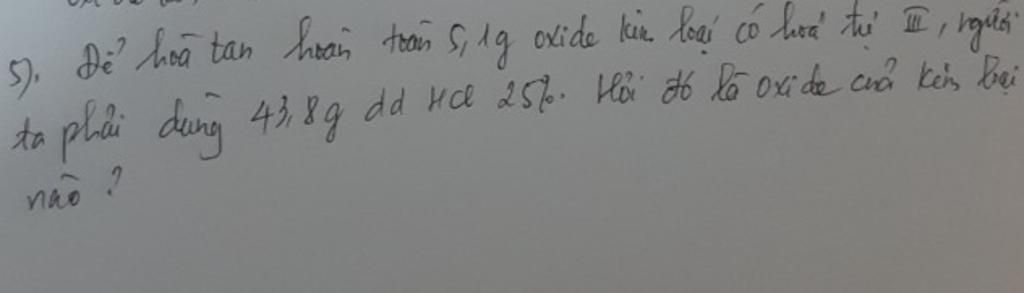 5). Để hoà tan hoàn toàn 5,1g oxide kim loại có hoá trị III, người
ta phải dùng 43,8g dd HCl 25%. Hỏi đó là oxide của kim loại
nào?